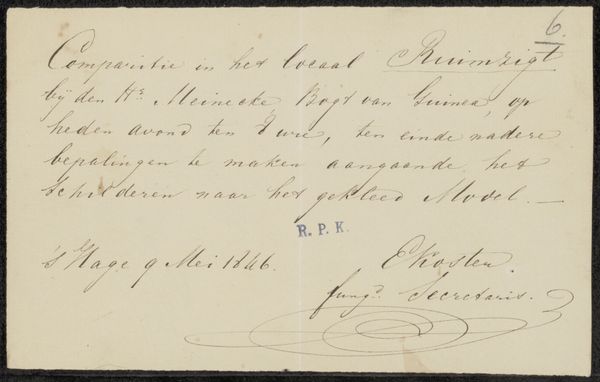 6.
Comparitie in het locaal Ruimzigt
bij den Hr. Meinecke, Bogt van Guinea, op
heden avond ten 8 ure, ten einde nadere
bepalingen te maken aangaande het
schilderen naar het gekleed Model. —
R. P. K.
's Hage 9 Mei 1846.
EKosten.
fungd. Secretaris.